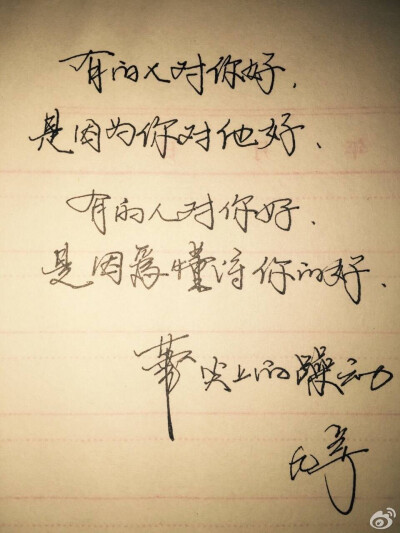 有的人对你好，
是因为你对他好、
有的人对你好、
是因為懂得你的好、
筆尖上的躁动